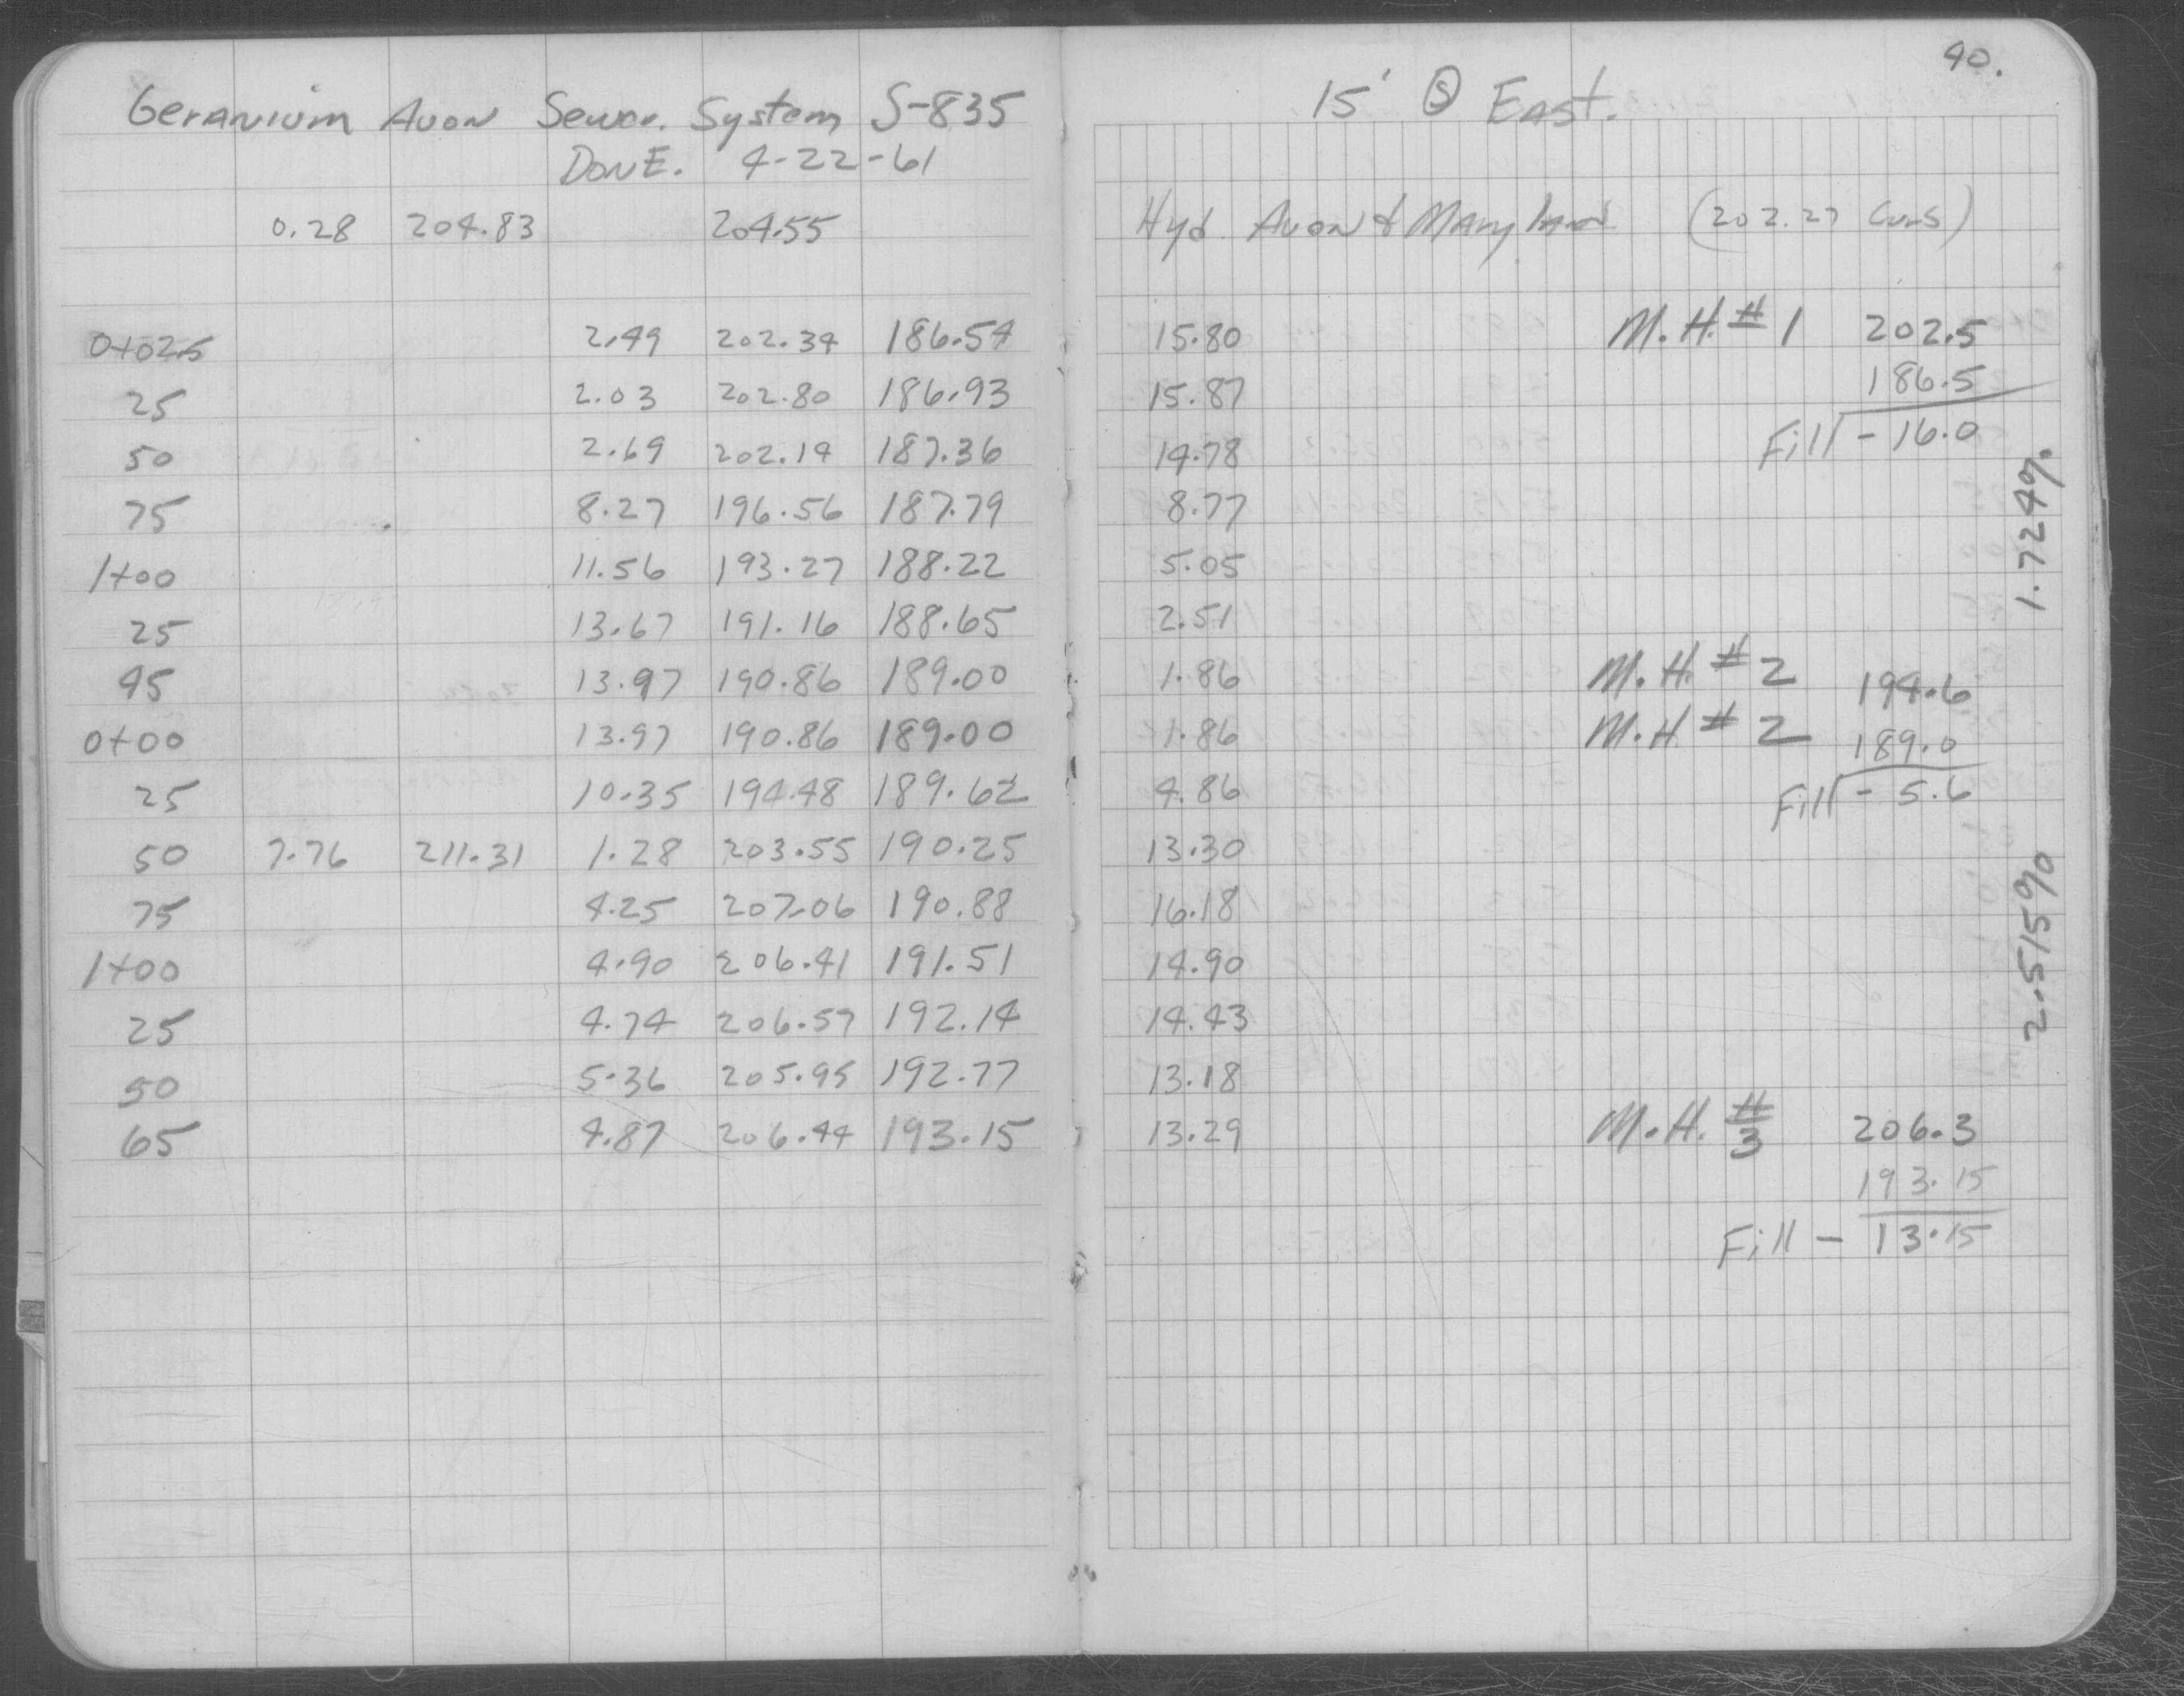 Geranium Avon Sewer. System S-835
DONE. 4-22-61
0.28 204.83 204.55
0+02.5 2.49 202.34 186.54
25 2.03 202.80 186.93
50 2.69 202.14 187.36
75 8.27 196.56 187.79
1+00 11.56 193.27 188.22
25 13.67 191.16 188.65
45 13.97 190.86 189.00
0+00 13.97 190.86 189.00
25 10.35 194.48 189.62
50 7.76 211.31 1.28 203.55 190.25
75 4.25 207.06 190.88
1+00 4.90 206.41 191.51
25 4.74 206.57 192.14
50 5.36 205.95 192.77
65 4.87 206.44 193.15
40.
15' Ⓢ East.
Hyd Avon & Maryland (202.27 Curb)
15.80 M.H.# 1 202.5
15.87 186.5
14.78 Fill - 16.0
8.77
5.05
2.51
1.86 M.H.# 2 194.6
1.86 M.H # 2 189.0
4.86 Fill - 5.6
13.30
16.18
14.90
14.43
13.18
13.29 M.H. # 3 206.3
193.15
Fill - 13.15
1.724%
2.515%